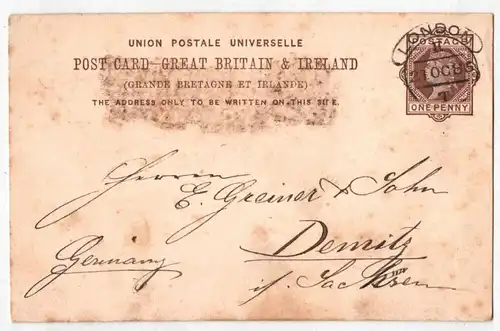 UNION POSTALE UNIVERSELLE
POST CARD-GREAT BRITAIN & IRELAND
(GRANDE BRETAGNE ET IRLANDE)
THE ADDRESS ONLY TO BE WRITTEN ON THIS SIDE.
LONDON
POSTAGE
OC 8
ONE PENNY
Herren
E. Greiner & Sohn
Demitz
Germany
i/ Sachsen